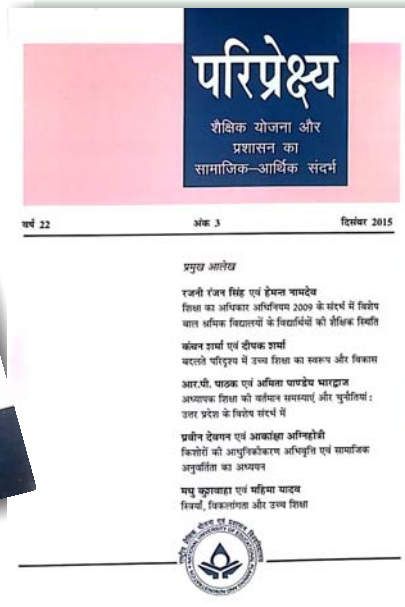 परिप्रेक्ष्य
शैक्षिक योजना और
प्रशासन का
सामाजिक–आर्थिक संदर्भ
वर्ष 22 अंक 3 दिसंबर 2015
प्रमुख आलेख
रजनी रंजन सिंह एवं हेमन्त नामदेव
शिक्षा का अधिकार अधिनियम 2009 के संदर्भ में विशेष
बाल श्रमिक विद्यालयों के विद्यार्थियों की शैक्षिक स्थिति
कंचन शर्मा एवं दीपक शर्मा
बदलते परिदृश्य में उच्च शिक्षा का स्वरूप और विकास
आर.पी. पाठक एवं अमिता पाण्डेय भारद्वाज
अध्यापक शिक्षा की वर्तमान समस्याएं और चुनौतियां :
उत्तर प्रदेश के विशेष संदर्भ में
प्रवीन देवगन एवं आकांक्षा अग्निहोत्री
किशोरों की आधुनिकीकरण अभिवृत्ति एवं सामाजिक
अनुवर्तिता का अध्ययन
मधु कुशवाहा एवं महिमा यादव
स्त्रियाँ, विकलांगता और उच्च शिक्षा